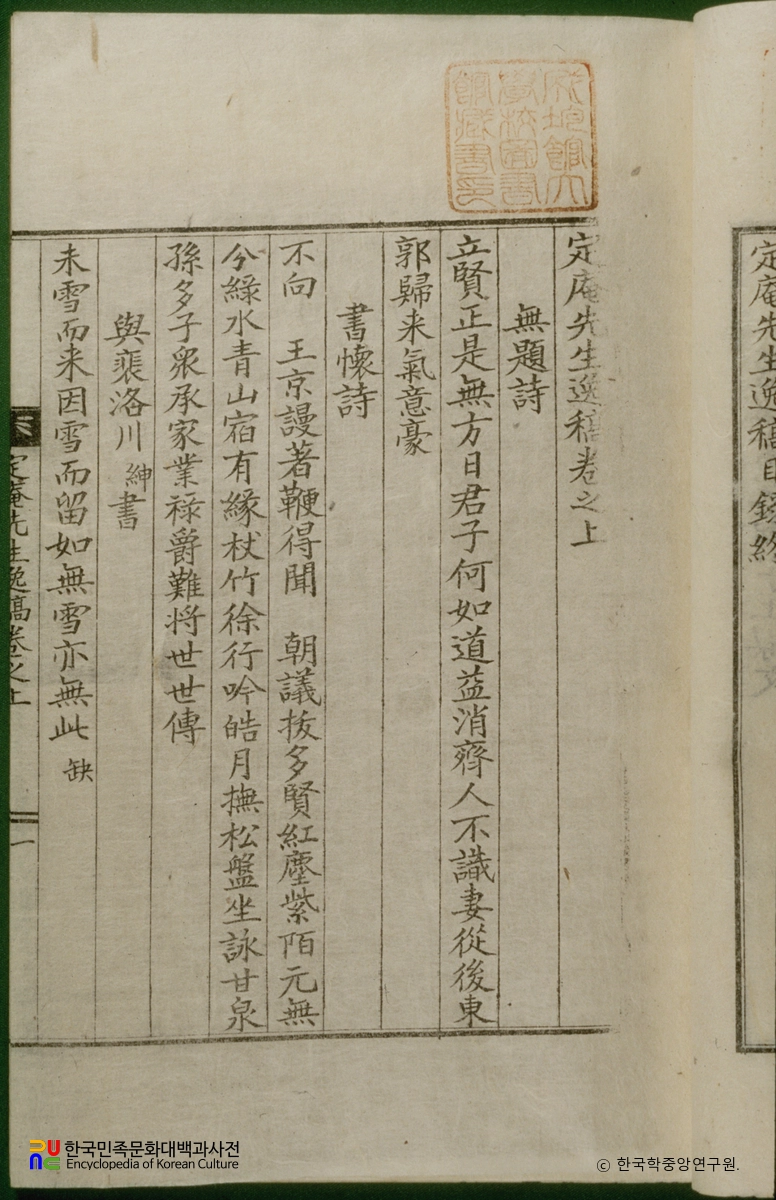 定庵先生逸稿目錄終
成均館大
學校圖書
館藏書印
定庵先生逸稿卷之上
無題詩
立賢正是無方日君子何如道益消齊人不識妻從後東
郭歸来氣意豪
書懷詩
不向　王京謾著鞭得聞　朝議拔多賢紅塵紫陌元無
分綠水青山宿有緣杖竹徐行吟皓月撫松盤坐詠甘泉
孫多子衆承家業祿爵難将世世傳
與裵洛川 紳書
未雪而来因雪而留如無雪亦無此 缺
定庵先生逸稿卷之上
一
한국민족문화대백과사전
Encyclopedia of Korean Culture
ⓒ 한국학중앙연구원.